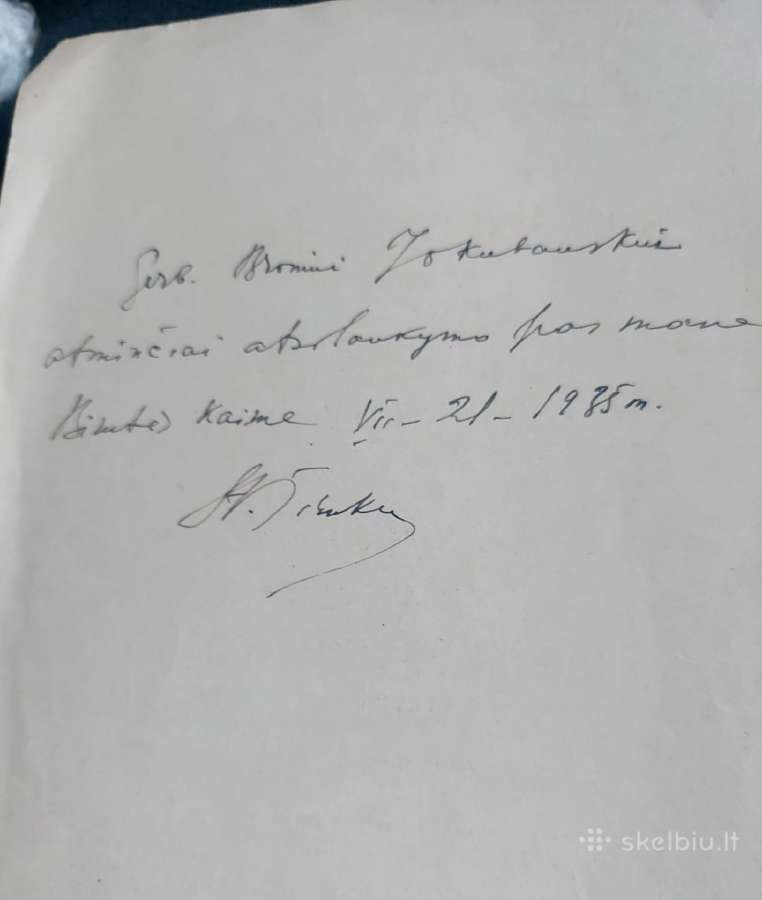 Gerb. Broniui Jokubauskui
atminčiai atsilankymo pas mane
kaime VII – 21 – 1985 m.
St.
skelbiu.lt